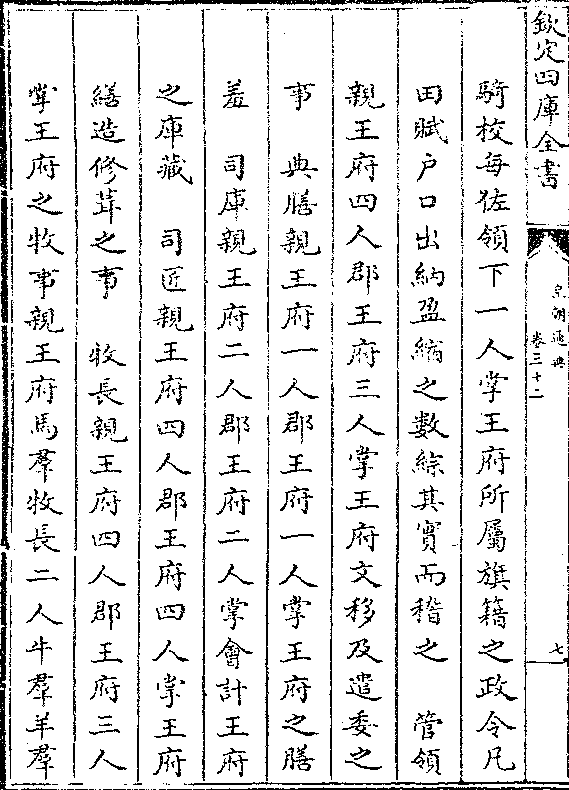 欽定四庫全書
皇朝通典
卷三十二
七
騎校每佐領下一人掌王府所屬旗籍之政令凡
田賦戶口出納盈縮之數綜其實而稽之　管領
親王府四人郡王府三人掌王府文移及遣委之
事　典膳親王府一人郡王府一人掌王府之膳
羞　司庫親王府二人郡王府二人掌會計王府
之庫藏　司匠親王府四人郡王府四人掌王府
繕造修葺之事　牧長親王府四人郡王府三人
掌王府之牧事親王府馬羣牧長二人牛羣羊羣